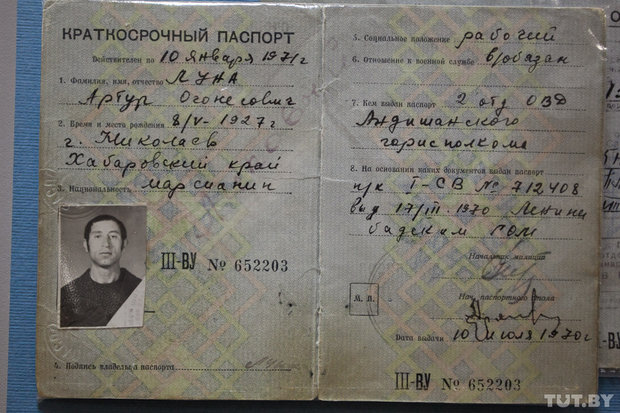 КРАТКОСРОЧНЫЙ ПАСПОРТ
Действителен по 10 января 1971 г
1. Фамилия, имя, отчество ЛУНА
Артур Огонесович
2. Время и место рождения 8/V-1927 г
г. Николаев
Хабаровский край
3. Национальность марсианин
III-ВУ № 652203
4. Подпись владельца паспорта
5. Социальное положение рабочий
6. Отношение к военной службе в/обязан
7. Кем выдан паспорт 2 отд ОВД
Андижанского
горисполкома
8. На основании каких документов выдан паспорт
п/к I-СВ № 712408
выд 17/III-1970 Ленина
бадским ГОМ
Начальник милиции
М. П.
Нач. паспортного стола
Дата выдачи 10 июля 1970 г
III-ВУ № 652203
TUT.BY